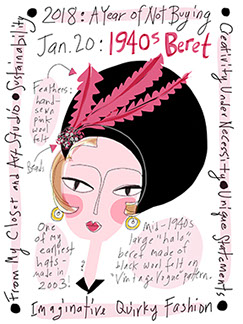 2018: A Year of Not Buying
Jan. 20: 1940s Beret
Feathers:
hand-
sewn
pink
wool
felt
Beads
One
of my
earliest
hats -
made in
2003!
Mid-1940s
large "halo"
beret made of
black wool felt on
"Vintage Vogue" pattern.
From My Closet and Art Studio • Sustainability
Creativity Under Necessity • Unique Statements
Imaginative Quirky Fashion